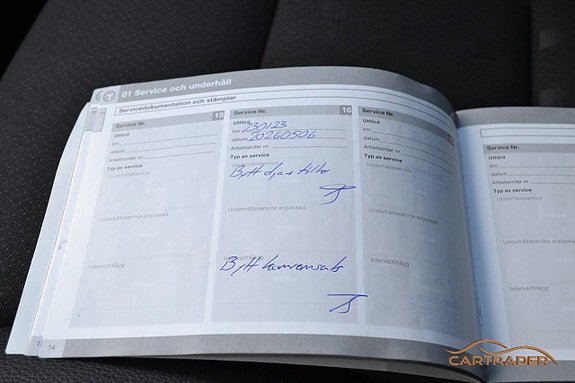 01 Service och underhåll
Servicedokumentation och stämplar
Service Nr. 15
Utförd
km
datum
Arbetsorder nr.
Typ av service
Underhållsservice anpassad
Intervalltillägg
Service Nr. 16
Utförd
km 230123
datum 20260506
Arbetsorder nr.
Typ av service
Bytt olja + filter
Underhållsservice anpassad
Bytt kamremsats
Service Nr.
Utförd
km
datum
Arbetsorder nr.
Typ av service
Underhållsservice anpassad
Intervalltillägg
14
Service Nr.
Utförd
km
datum
Arbetsorder nr.
Typ av service
Underhållsservice
Intervalltillägg
CARTRADER